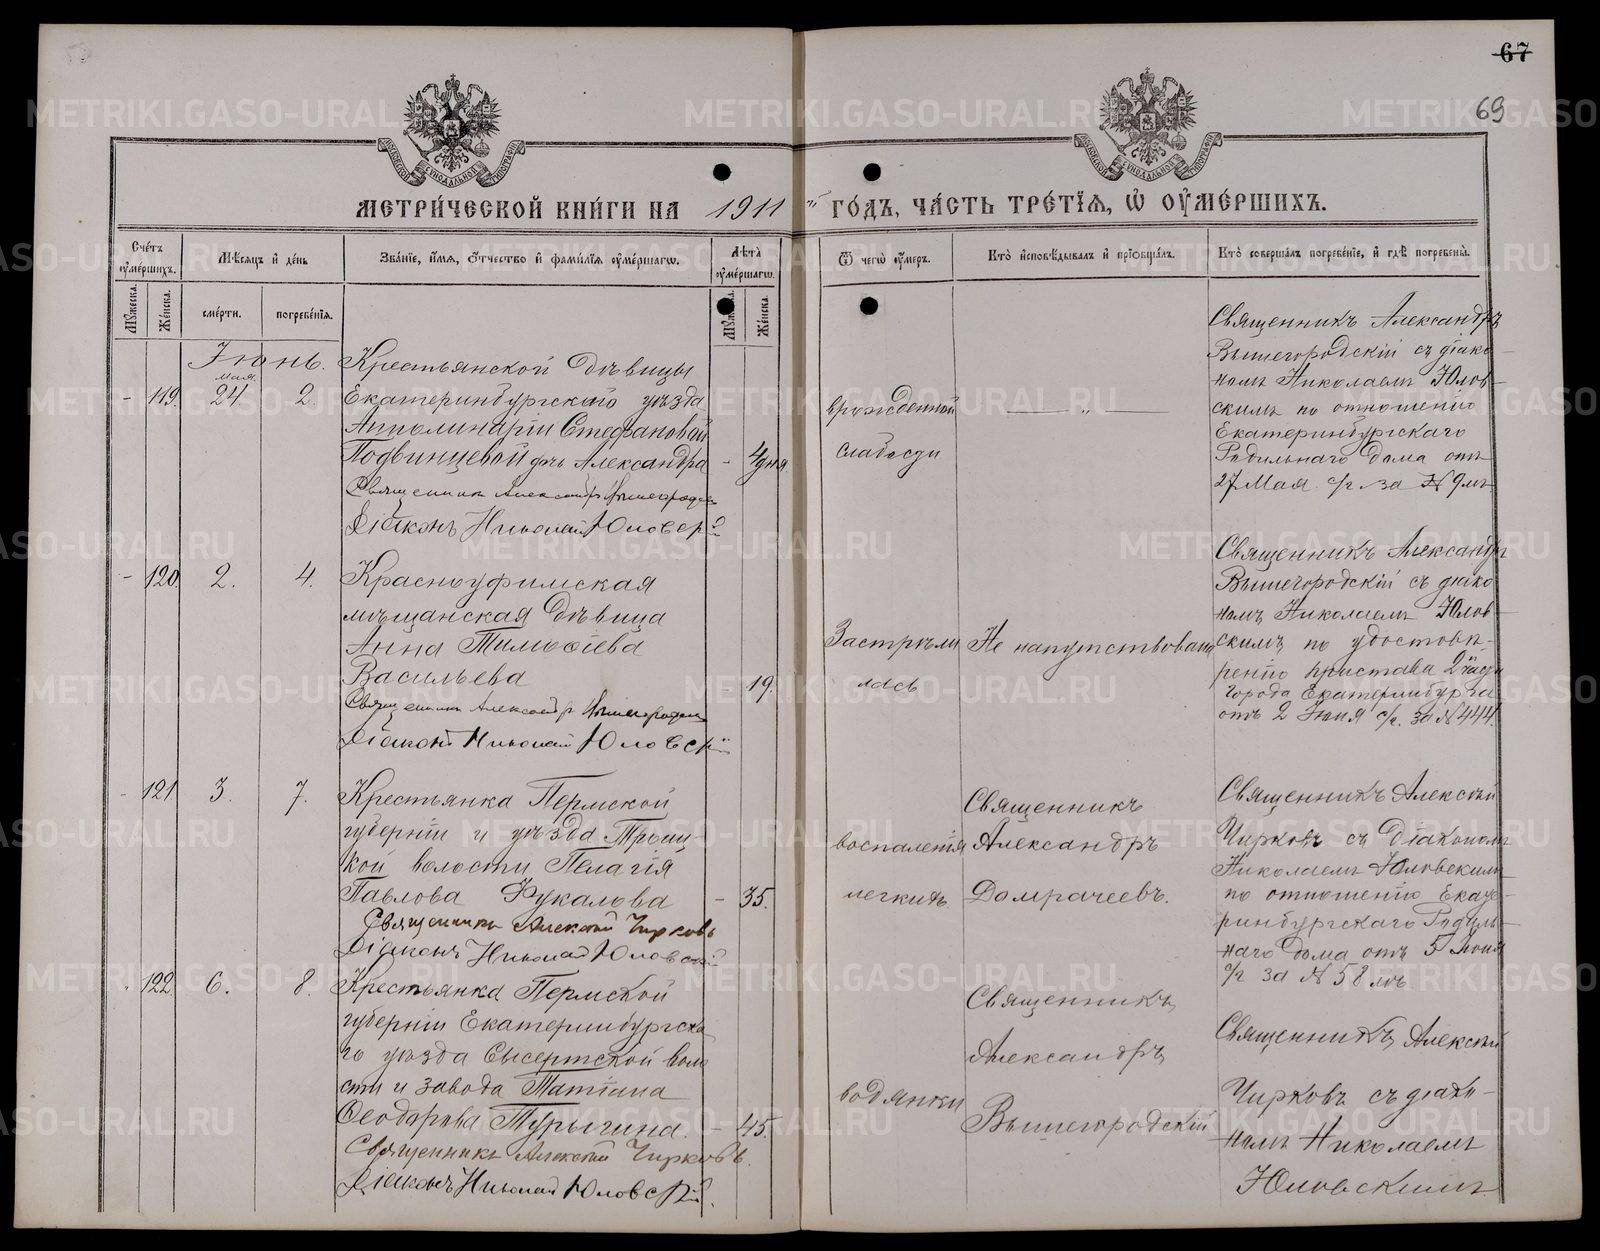 67
69
МЕТРИ́ЧЕСКОЙ КНИ́ГИ НА 1911 ГО́ДЪ, ЧА́СТЬ ТРЕ́ТІѦ, Ѡ ОУ҆МЕ́РШИХЪ.
Сче́тъ оу҆ме́ршихъ.
Мѣ́сѧцъ и҆ де́нь
Зва́нїе, и҆́мѧ, ѻ҆́тчество и҆ фами́лїѧ оу҆ме́ршагѡ.
Лѣ́та оу҆ме́ршагѡ.
Ѿ чегѡ̀ оу҆́меръ.
Кто̀ и҆сповѣ́дывалъ и҆ прїѡбща́лъ.
Кто̀ соверша́лъ погребе́нїе, и҆ гдѣ̀ погребены̀.
Му́жеска.
Же́нска.
сме́рти.
погребе́нїѧ.
Му́жеска.
Же́нска.
Іюнь.
мая
- 119. 24. 2.
Крестьянской дѣвицы
Екатеринбургскаго уѣзда
Апполинаріи Стефановой
Подвинцевой дчь Александра
- 4 дня
Священникъ Александръ Вышегородскій
Діаконъ Николай Юловскій
врожденной
слабости
— „ —
Священникъ Александръ
Вышегородскій съ діако-
номъ Николаемъ Юлов-
скимъ по отношенію
Екатеринбургскаго
Родильнаго дома отъ
27 Мая с/г. за № 9мъ.
- 120. 2. 4.
Красноуфимская
мѣщанская дѣвица
Анна Тимоѳіева
Васильева
- 19.
Священникъ Александръ Вышегородскій
Діаконъ Николай Юловскій
Застрѣли
лась
Не напутствована
Священникъ Александръ
Вышегородскій съ діако
номъ Николаемъ Юлов-
скимъ по удостовѣ-
ренію пристава 2й части
города Екатеринбурга
отъ 2 Іюня с/г. за № 444.
- 121. 3. 7.
Крестьянка Пермской
губерніи и уѣзда Троиц-
кой волости Пелагія
Павлова Фукалова
- 35.
Священникъ Алексѣй Чирковъ
Діаконъ Николай Юловскій
воспаленія
легкихъ
Священникъ
Александръ
Домрачеевъ.
Священникъ Алексѣй
Чирковъ съ Діакономъ
Николаемъ Юловскимъ
по отношенію Екате-
ринбургскаго Родиль-
наго дома отъ 5 Іюня
с/г за № 58 мъ
- 122. 6. 8.
Крестьянка Пермской
губерніи Екатеринбургска
го уѣзда Сысертской воло
сти и завода Татіана
Ѳеодорова Турыгина.
- 45.
Священникъ Алексѣй Чирковъ.
Діаконъ Николай Юловскій.
водянки
Священникъ
Александръ
Вышегородскій
Священникъ Алексѣй
Чирковъ съ діако-
номъ Николаемъ
Юловскимъ
METRIKI.GASO-URAL.RU